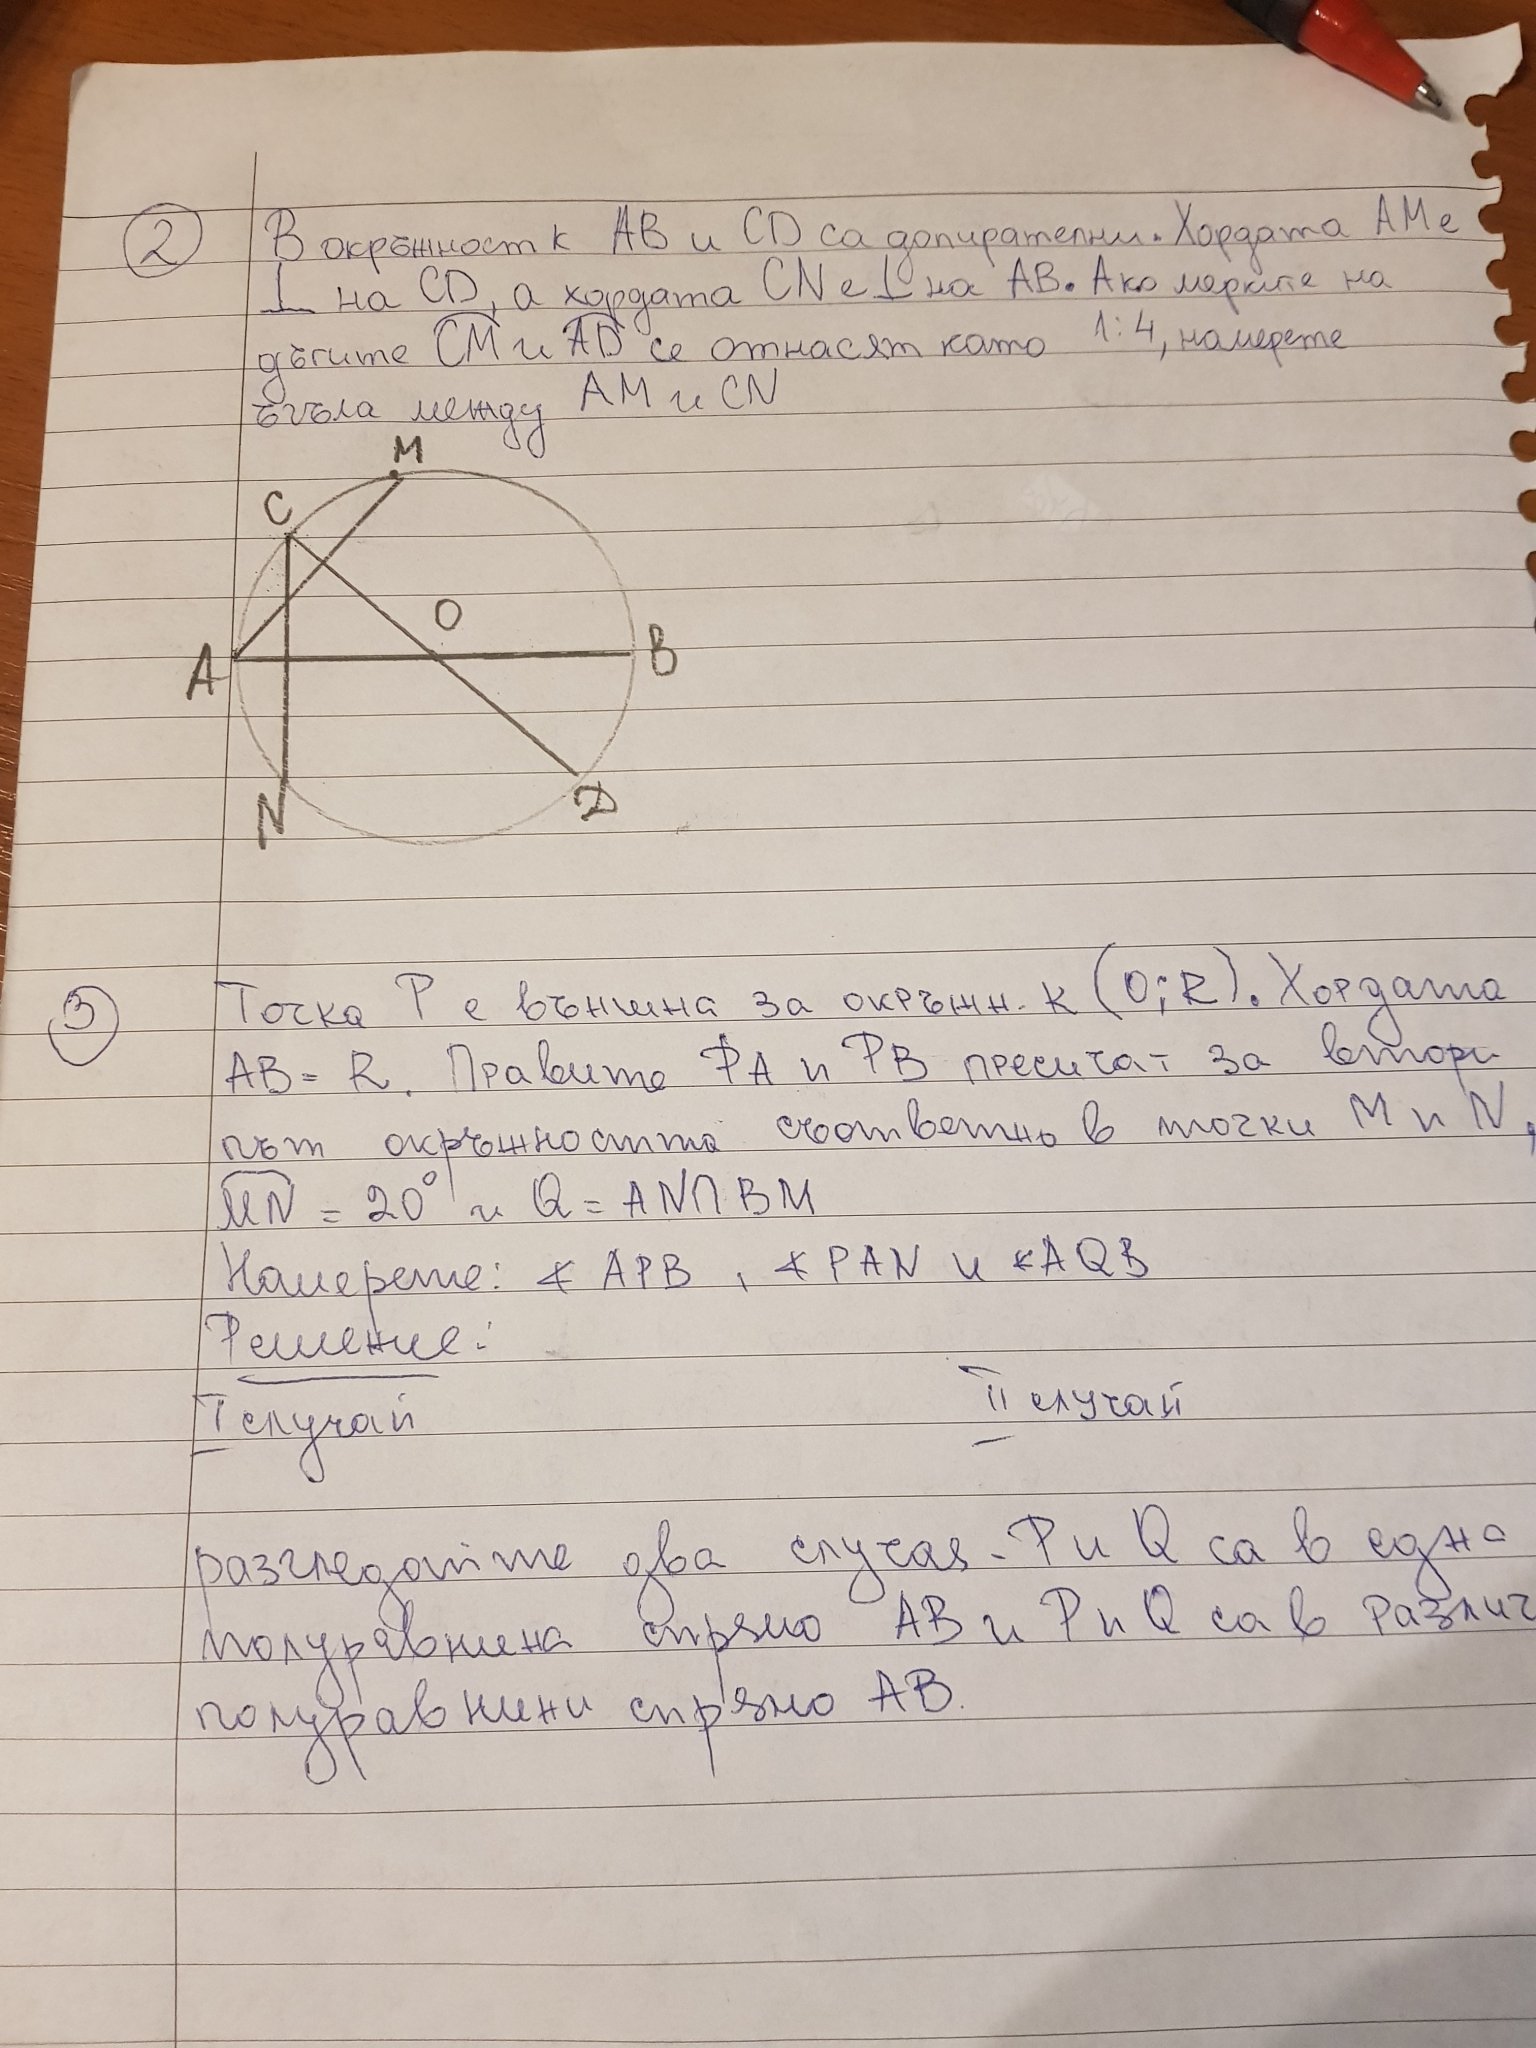 2 В окръжност k АВ и CD са допирателни. Хордата АМ е
⊥ на CD, а хордата CN е ⊥ на АВ. Ако мерките на
дъгите CM и AD се отнасят като 1:4, намерете
ъгъла между АМ и CN
M
C
O
A
B
N
D
3 Точка Р е външна за окръжн. k (O; R). Хордата
AB = R. Правите РА и РВ пресичат за втори
път окръжността съответно в точки М и N,
MN = 20° и Q = AN∩BM
Намерете: ∢ APB, ∢ PAN и ∢AQB
Решение:
I случай
II случай
разгледайте два случая - Р и Q са в една
полуравнина спрямо АВ и Р и Q са в различ
полуравнини спрямо АВ.